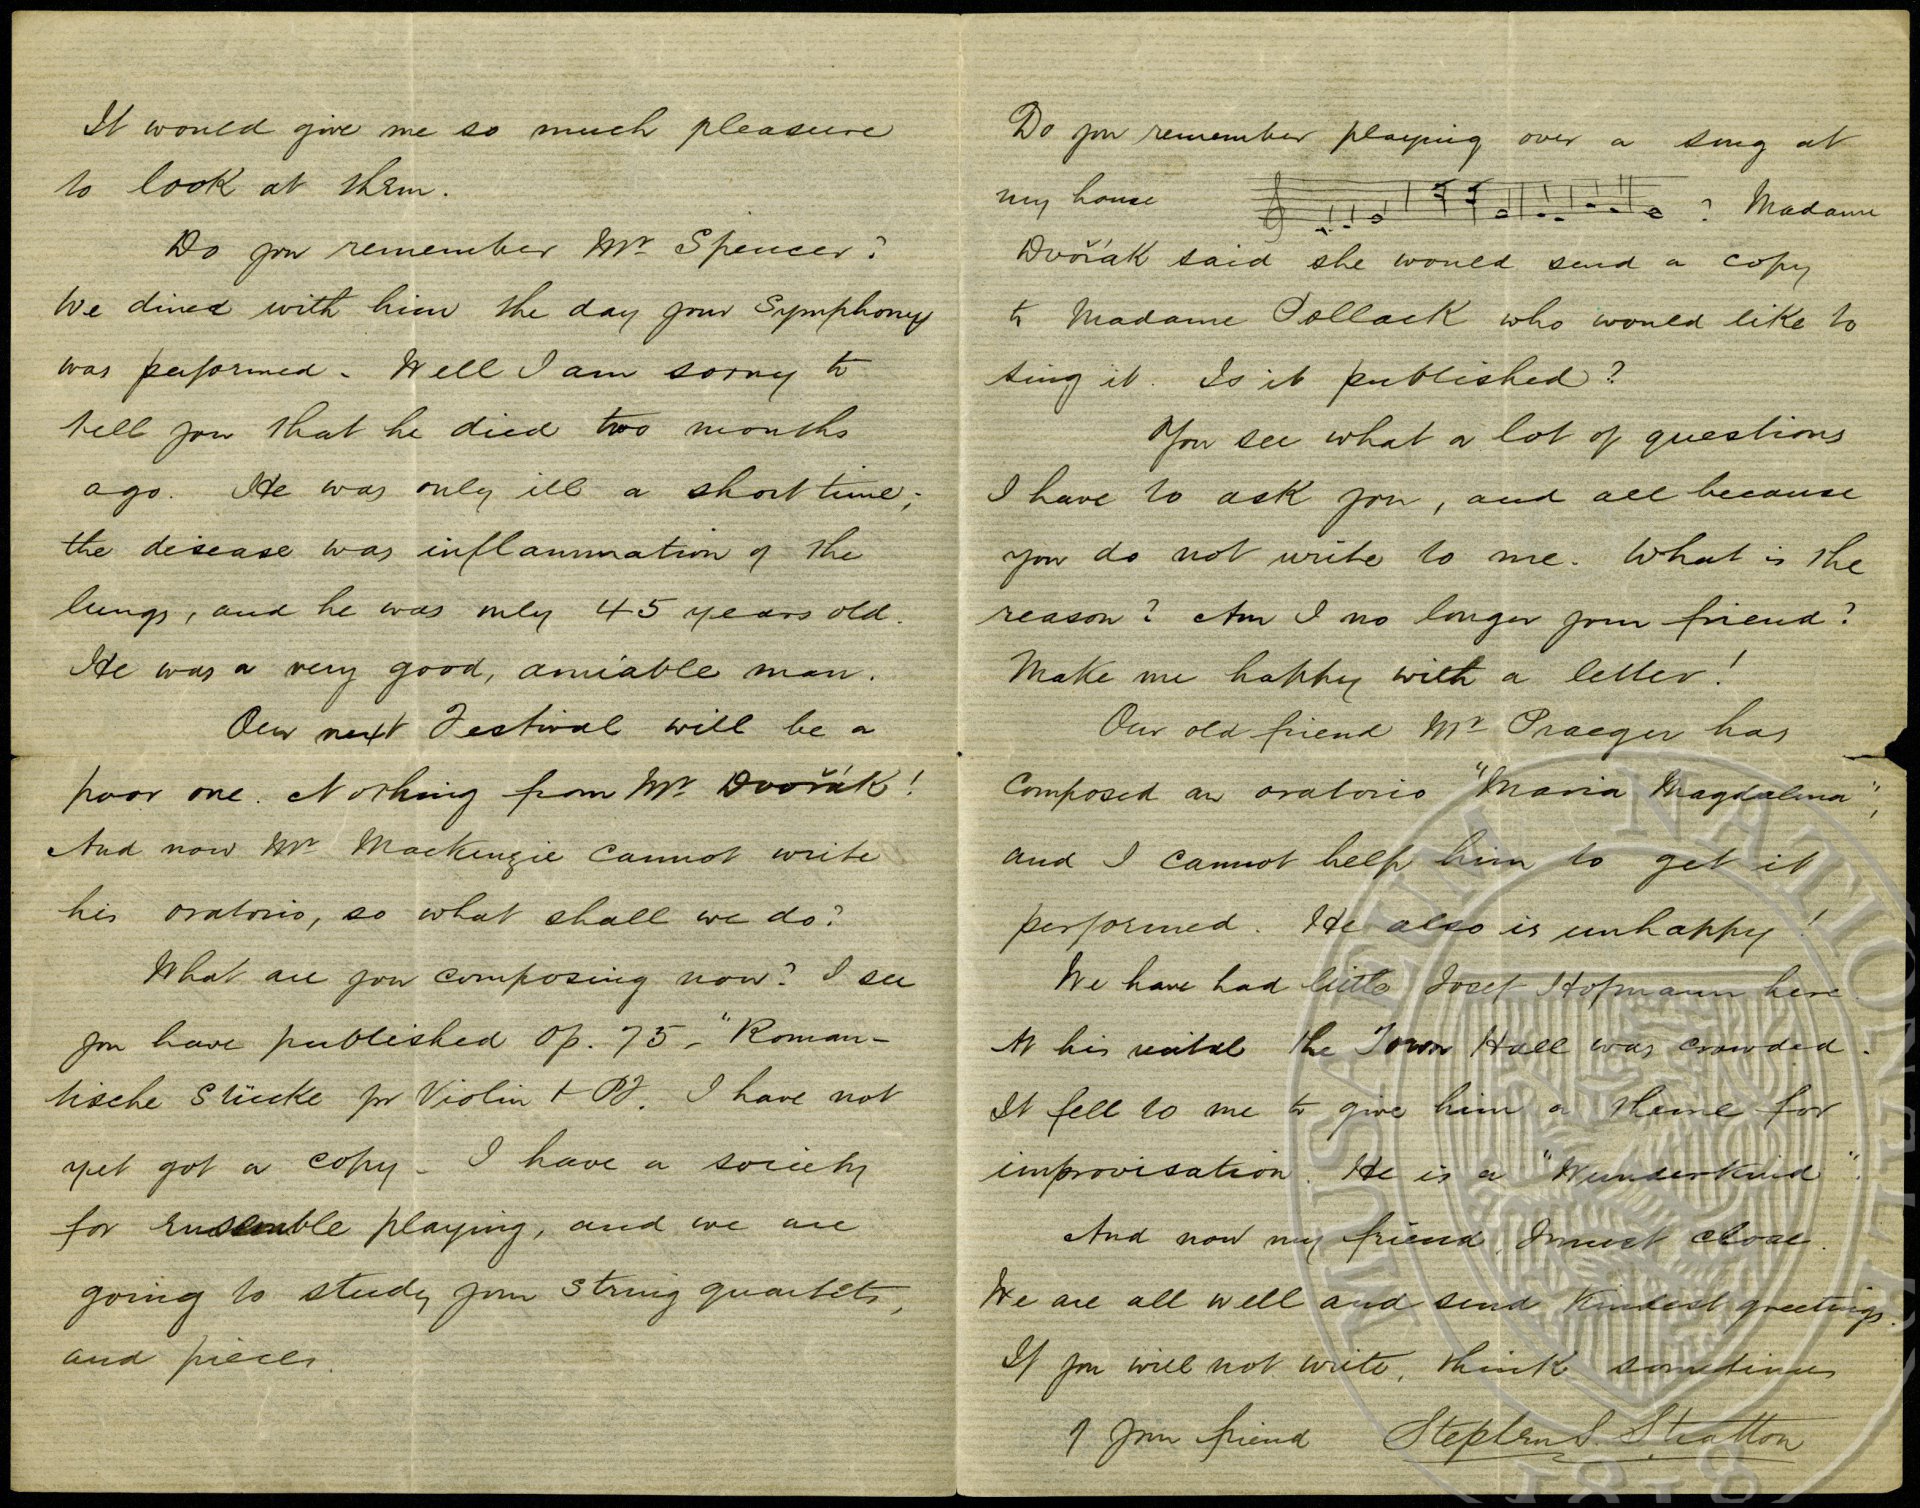 It would give me so much pleasure
to look at them.
Do you remember Mr Spencer?
We dined with him the day your Symphony
was performed. Well I am sorry to
tell you that he died two months
ago. He was only ill a short time;
the disease was inflammation of the
lungs, and he was only 45 years old.
He was a very good, amiable man.
Our next Festival will be a
poor one. Nothing from Mr Dvořák!
And now Mr Mackenzie cannot write
his oratorio, so what shall we do?
What are you composing now? I see
you have published Op. 75 - "Roman-
tische Stücke for Violin + Pf. I have not
yet got a copy - I have a society
for ensemble playing, and we are
going to study your string quartets,
and pieces.
Do you remember playing over a song at
my house ? Madame
Dvořák said she would send a copy
to Madame Pollack who would like to
sing it. Is it published?
You see what a lot of questions
I have to ask you, and all because
you do not write to me. What is the
reason? Am I no longer your friend?
Make me happy with a letter!
Our old friend Mr Praeger has
composed an oratorio "Maria Magdalena",
and I cannot help him to get it
performed. He also is unhappy!
We have had little Josef Hofmann here.
At his recital the Town Hall was crowded.
It fell to me to give him a theme for
improvisation. He is a "Wunderkind".
And now my friend, I must close.
We are all well and send kindest greetings.
If you will not write, think sometimes
of your friend Stephen S. Stratton
MUSAEUM NATIONALE
1818